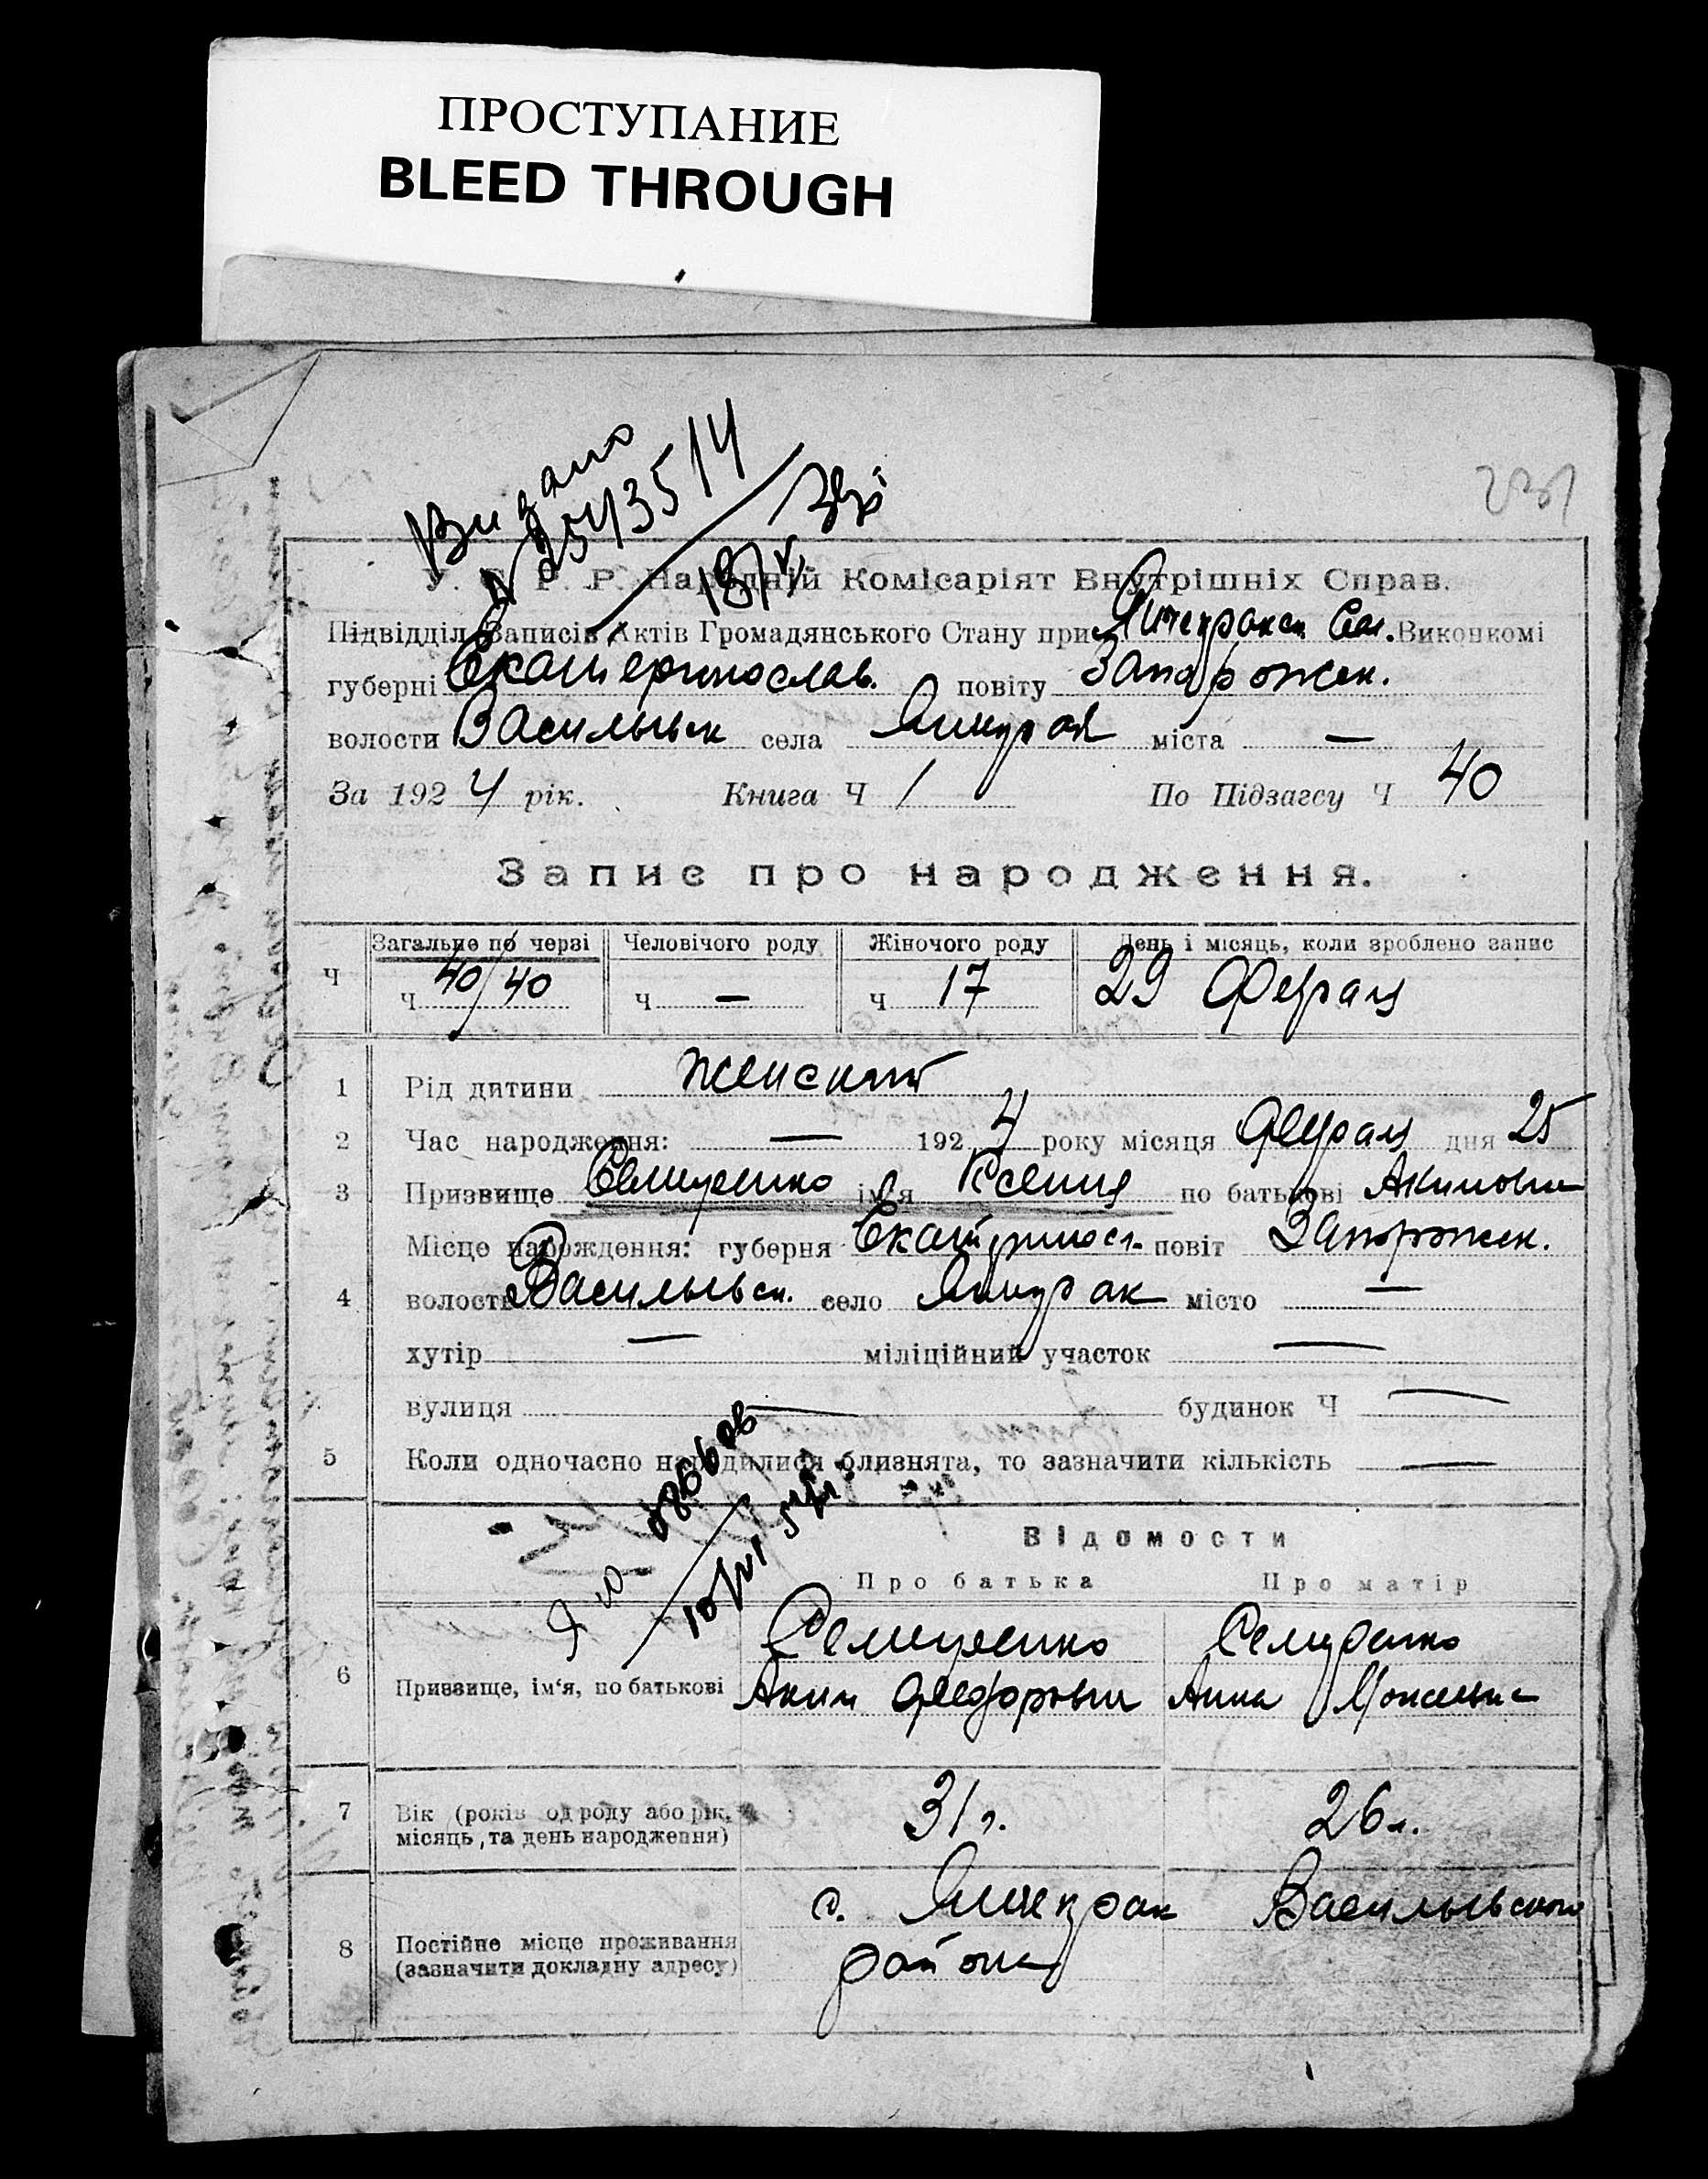 ПРОСТУПАНИЕ
BLEED THROUGH
Видано
У. С. Р. Р. Народній Комісаріят Внутрішніх Справ.
Підвідділ Записів Актів Громадянського Стану при Янчекракск. Сел. Виконкомі
губерні Екатеринослав. повіту Запорожск.
волости Васильевск села Янчекрак міста —
За 1924 рік. Книга Ч 1 По Підзагсу Ч 40
Запис про народження.
Ч
Загальне по черзі
Ч 40/40
Человічого роду
Ч —
Жіночого роду
Ч 17
День і місяць, коли зроблено запис
29 Февраля
1 Рід дитини женский
2 Час народження: — 1924 року місяця Февраля дня 25
3 Призвище ім'я Ксения по батькові Акимовна
Місце народження: губерня Екатериносл. повіт Запорожск.
4 волость Васильевск. село Янчекрак місто —
хутір — міліційний участок —
вулиця — будинок Ч —
5 Коли одночасно народилися близнята, то зазначити кількість —
Відомости
Про батька Про матір
6 Призвище, ім'я, по батькові
Аким Федорович Анна
7 Вік (років од роду або рік, місяць, та день народження)
31 г. 26 л.
8 Постійне місце проживання (зазначити докладну адресу)
с. Янчекрак Васильевского
района